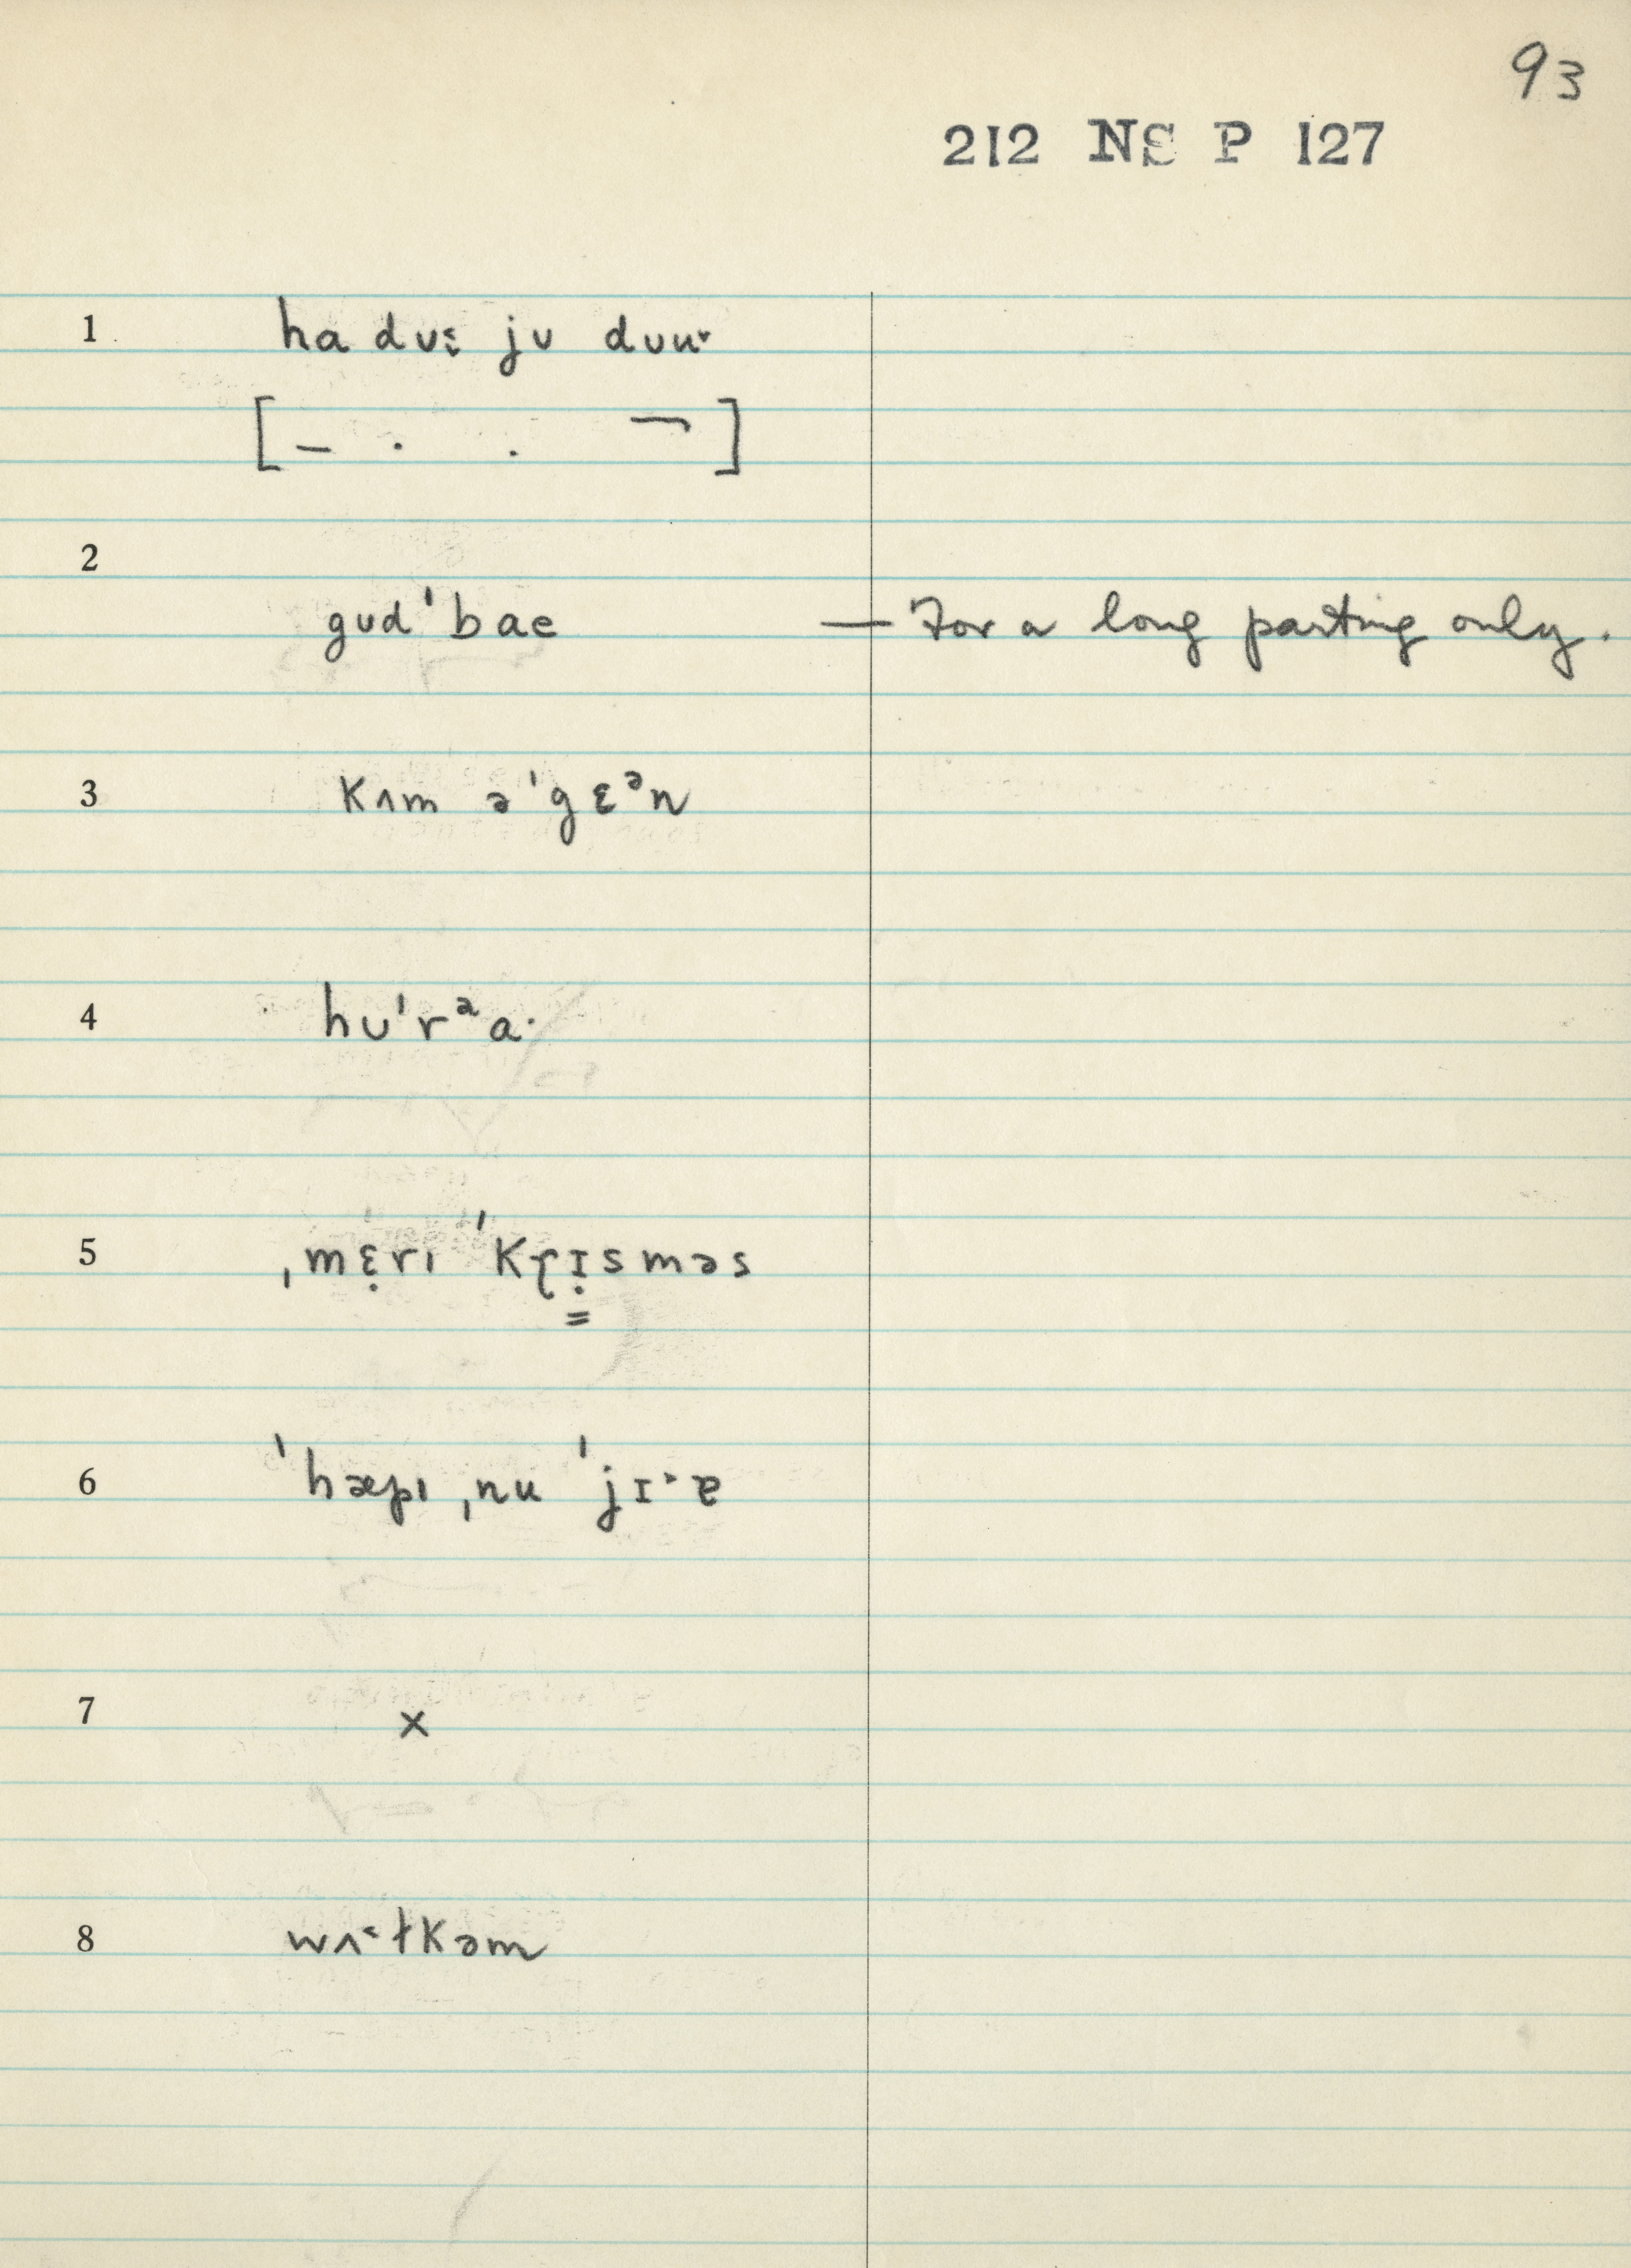 93
212 NS P 127
1 ha dʊɛ̣ jʊ dʊu˞
[– · · ¬]
2
gʊdˈbae — For a long parting only.
3 kʌm əˈgɛᵊn
4 hʊˈrᵊa·
5 ˌmɛ̣rɪ ˈkɽɪ̣sməs
6 ˈhæpɪ ˌnu ˈjɪ·ɐ
7 ×
8 wʌ˂ɫkəm